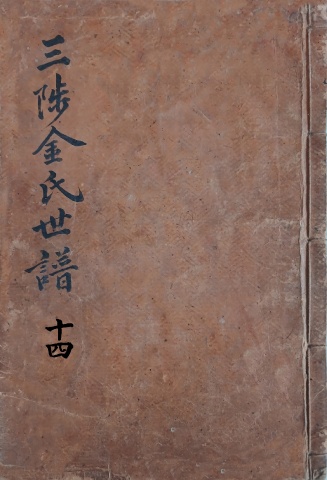 三陟金氏世譜
十四